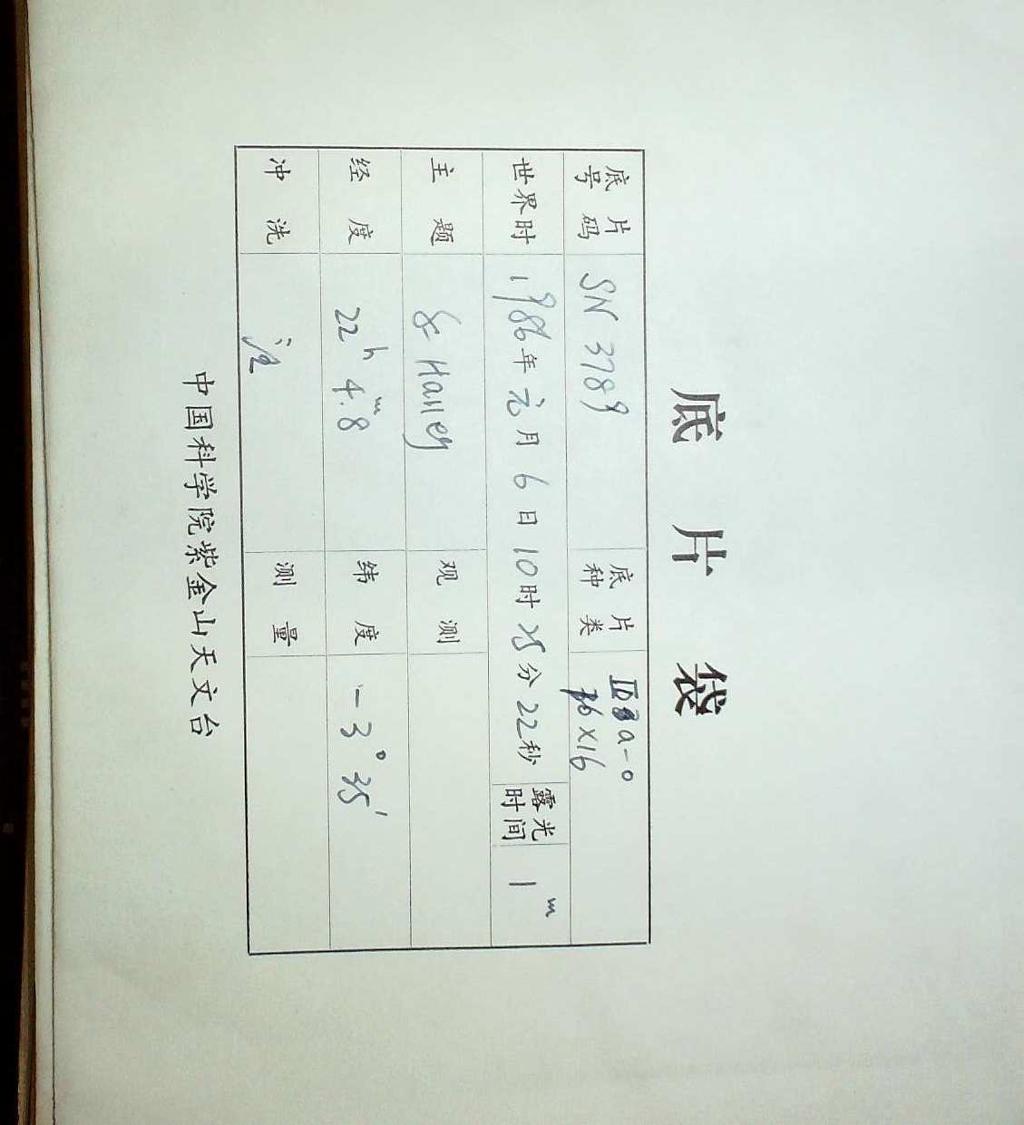 底片袋
底片号码 SN 3789 底片种类 IIa-o 16×16
世界时 1986年元月6日10时25分22秒 露光时间 1m
主题 & Halley 观测
经度 22h 4m.8 纬度 -3°35′
冲洗 测量
中国科学院紫金山天文台